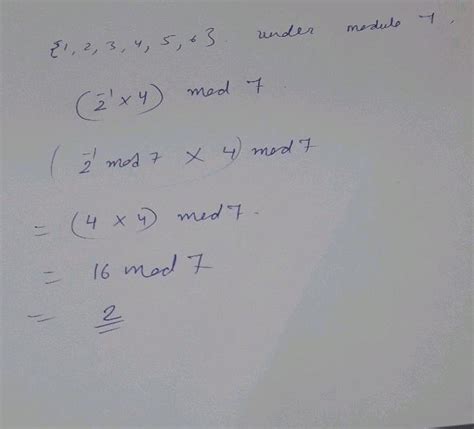 {1, 2, 3, 4, 5, 6}. under modulo 7.
(2⁻¹ × 4) mod 7
(2⁻¹ mod 7 × 4) mod 7
= (4 × 4) mod 7.
= 16 mod 7
= 2